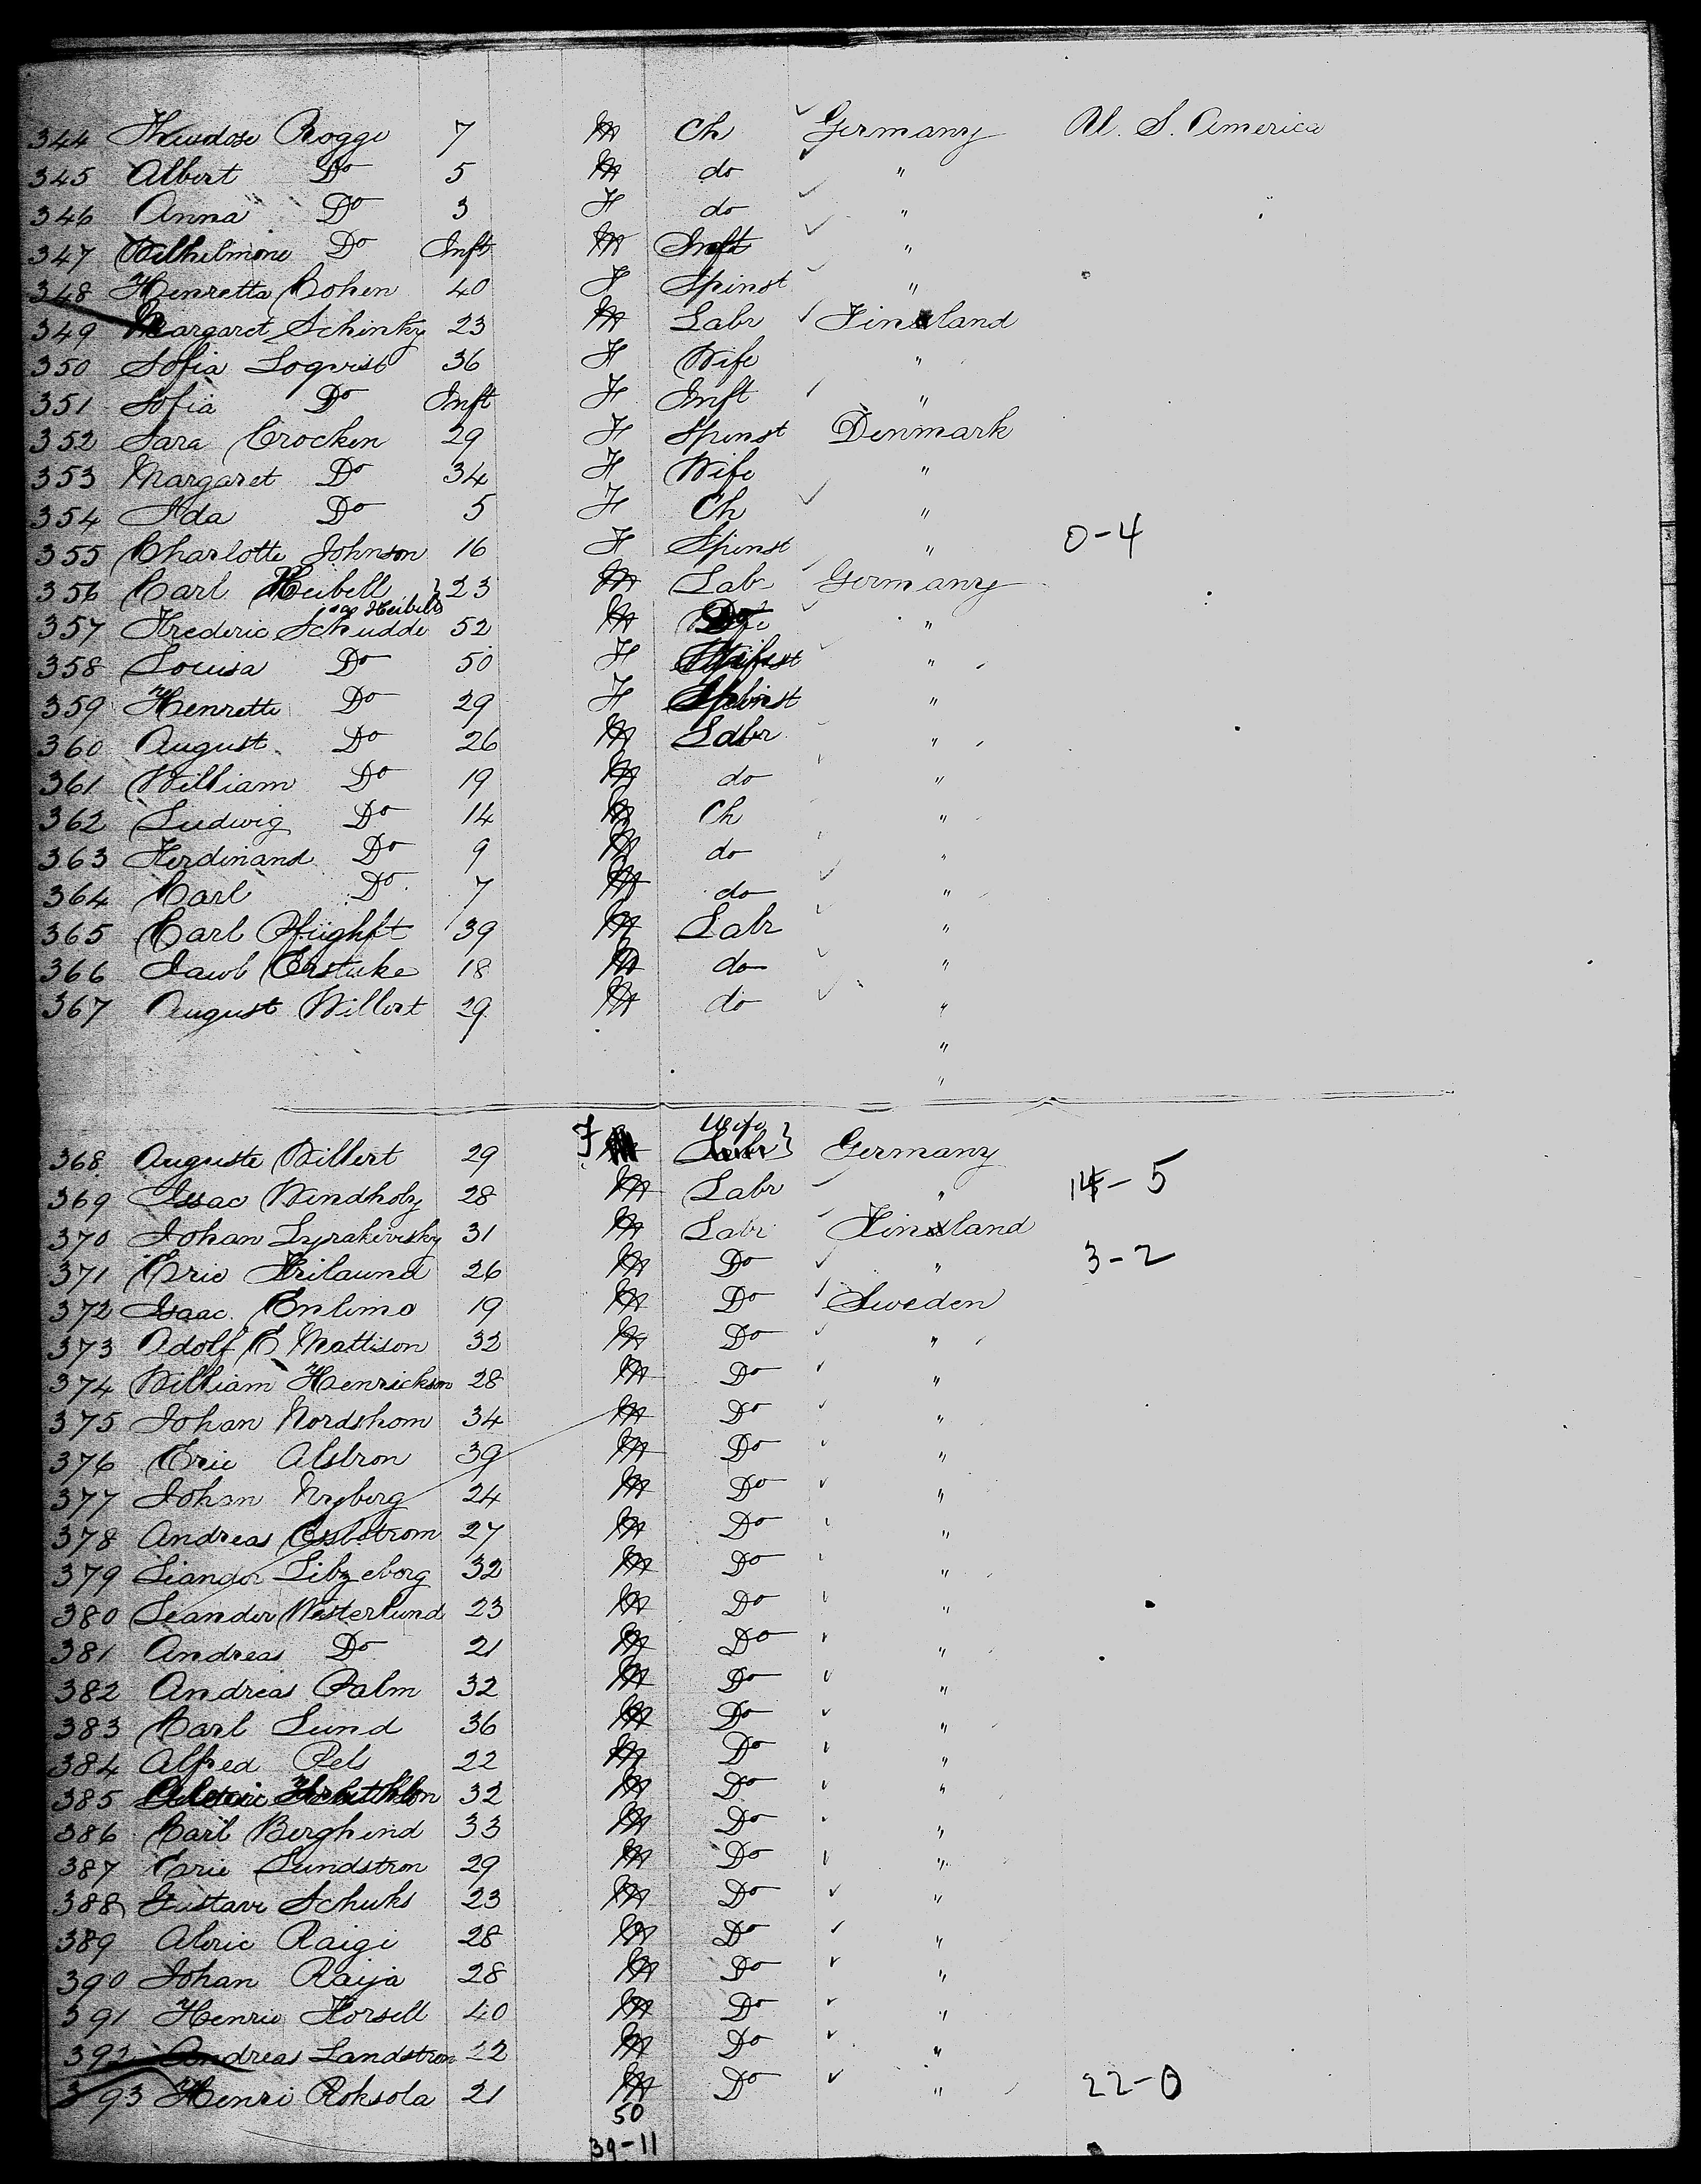 344 Theodose Rogge 7 M Ch Germany U. S. America
345 Albert Do 5 M do "
346 Anna Do 3 F do "
347 Wilhelmine Do Inft M Inft "
348 Henretta Cohen 40 F Spinst "
349 Margaret Schinky 23 M Labr Finland
350 Sofia Loqvist 36 F Wife "
351 Sofia Do Inft F Inft "
352 Sara Crocken 29 F Spinst Denmark
353 Margaret Do 34 F Wife "
354 Ida Do 5 F Ch "
355 Charlotte Johnson 16 F Spinst " 0-4
356 Carl Heibell 23 M Labr Germany
357 Frederic Schudde 52 M Do "
358 Louisa Do 50 F Wife "
359 Henrette Do 29 F Spinst "
360 August Do 26 M Labr "
361 William Do 19 M do "
362 Ludwig Do 14 M Ch "
363 Ferdinand Do 9 M do "
364 Carl Do 7 M do "
365 Carl 39 M Labr "
366 18 M do "
367 August Willert 29 M do "
"
"
Wife
368 Auguste Willert 29 F Labr Germany
369 Isaac Windholz 28 M Labr " 14-5
370 Johan 31 M Labr Finland
371 Eric Frilaund 26 M Do " 3-2
372 Isaac Enlimo 19 M Do Sweden
373 Adolf E Mattison 32 M Do "
374 William Henrickson 28 M Do "
375 Johan Nordshom 34 M Do "
376 Eric Alstron 39 M Do "
377 Johan Nyberg 24 M Do "
378 Andreas Essbstrom 27 M Do "
379 Liandor Libzeborg 32 M Do "
380 Leander Westerlund 23 M Do "
381 Andreas Do 21 M Do "
382 Andreas Palm 32 M Do "
383 Carl Lund 36 M Do "
384 Alfred Pels 22 M Do "
385 32 M Do "
386 Carl Berghind 33 M Do "
387 Eric Lundstron 29 M Do "
388 Gustave Schuks 23 M Do "
389 Alric Raigi 28 M Do "
390 Johan Raija 28 M Do "
391 Henric Forsell 40 M Do "
392 Andreas Landstron 22 M Do "
393 Henri Roksola 21 M Do " 22-0
50
39-11